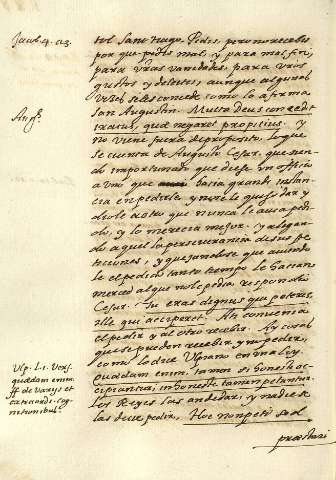 Jacob. 4. a 3.
tol Santiago. Pedis, pero no recebis
porque pedis mal, y para mal fin,
para vras vanidades, para vros
gustos y deleites, aunque algunas
vezes se les concede como lo afirma
Aug.
San Augustin. Multa Deus concedit
iratus, quæ negaret propitius. y
no viene fuera de proposito, lo que
se cuenta de Augusto Cesar, que siendo
importunado que diese un officio
a uno que hacia grande instancia
en pedirle, y no se le quiso dar, y
diole a otro que nunca le avia pedido,
y lo merecia mejor. y alegando
aquel la perseverancia de sus peticiones,
y quejandose que aviendole
el pedido tanto tiempo le hacian
merced a quien no le pedia, respondio
Cesar. Tu eras dignus qui peteres,
ille qui acciperet. A ti convenia
el pedir y al otro recebir. Ay cosas
que se pueden recebir, y no pedir,
como lo dice Ulpiano en una ley.
Ulp. L. 1. Vers.
quædam enim
ff de Varys et
extraord. cog-
nitionibus.
Quædam enim, tametsi honeste ac-
cipiantur, inhoneste tamen petuntur.
Los Reyes las an de dar, y nadie se
las deve pedir. Hoc non peti sed
præstari